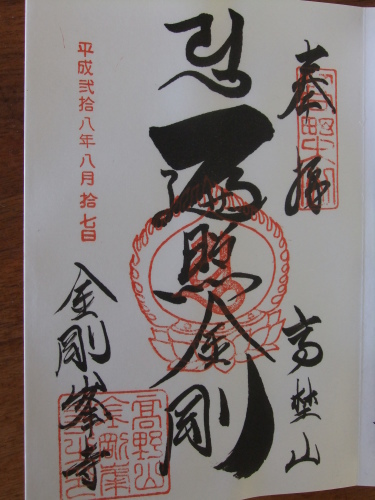 奉拝
高野山
遍照金剛
金剛峯寺
平成弐拾八年八月拾七日
高野山
金剛峯